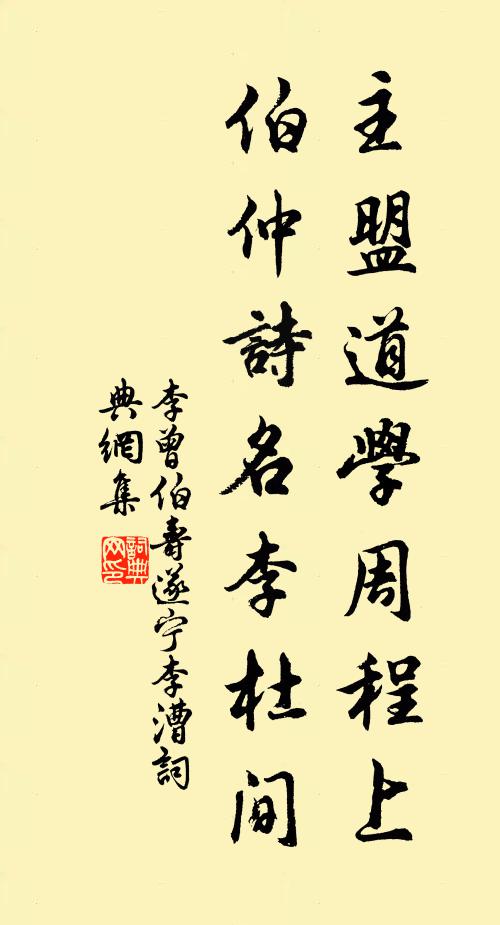 主盟道學周程上
伯仲詩名李杜間
李曾伯壽遂宁李漕詞
典網集
詞典
网印